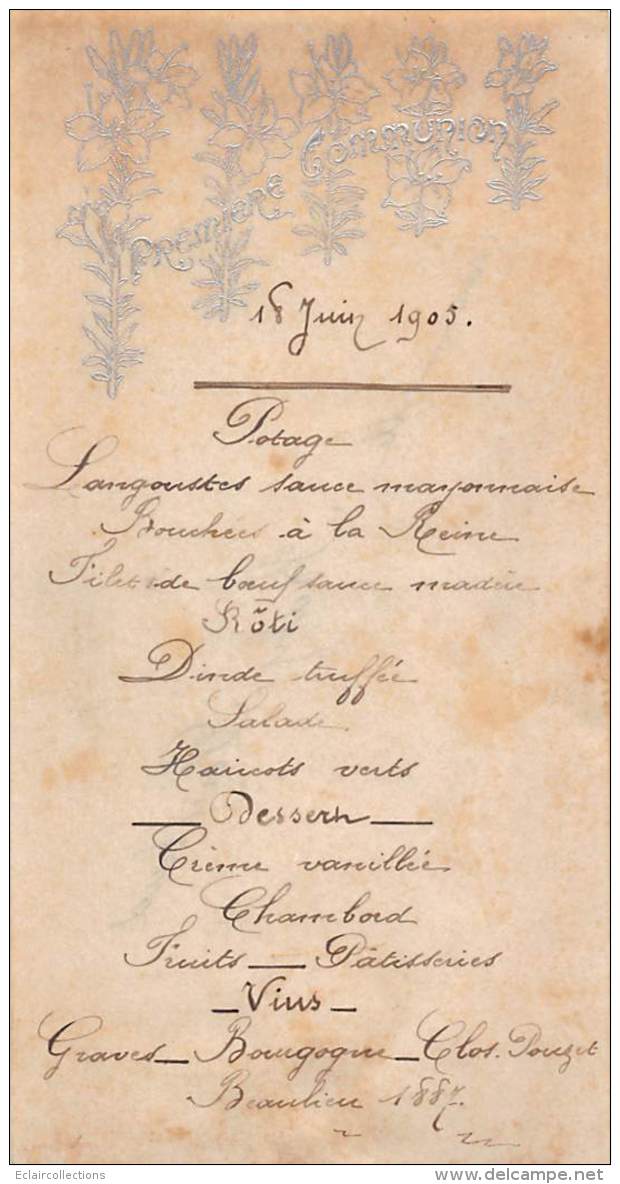 PREMIERE COMMUNION
18 Juin 1905.
Potage
Langoustes sauce mayonnaise
Bouchées à la Reine
Filet de bœuf sauce madère
Rôti
Dinde truffée
Salade
Haricots verts
Dessert
Crème vanillée
Chambord
Fruits — Pâtisseries
– Vins –
Graves – Bourgogne – Clos. Pouzet
Beaulieu 1887.
Eclaircollections
www.delcampe.net